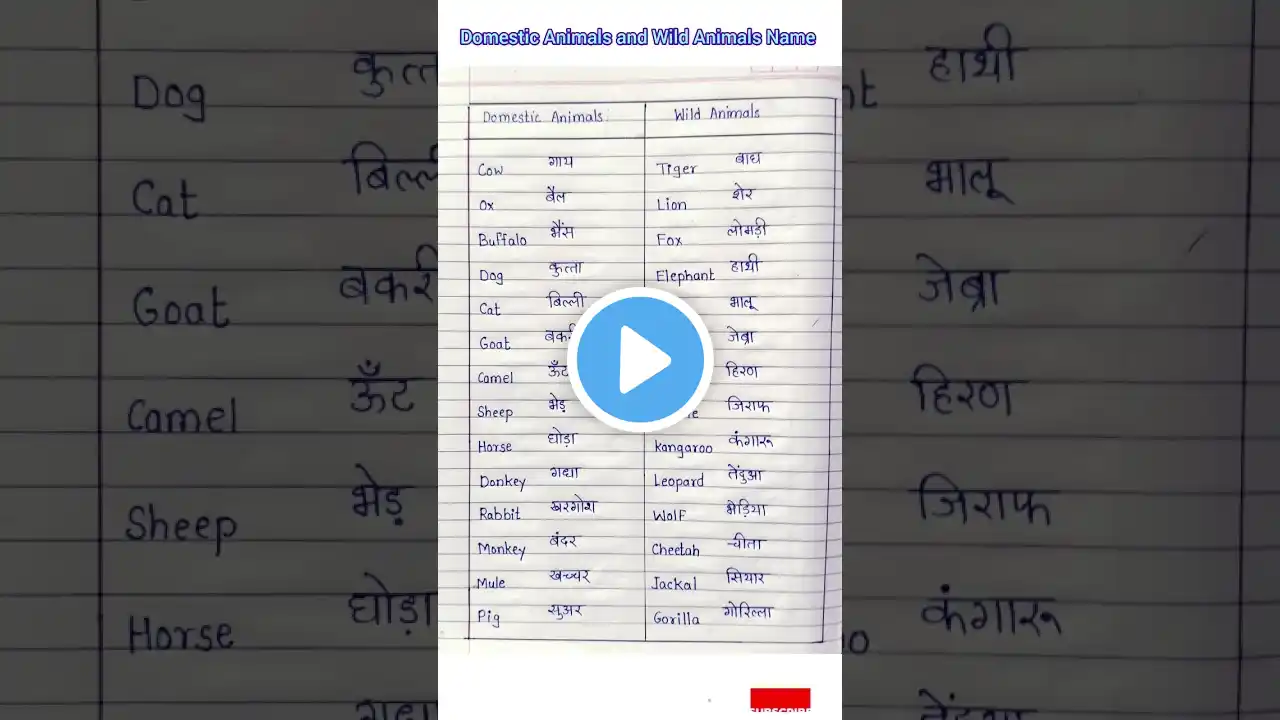 Domestic Animals and Wild Animals Name
Domestic Animals. Wild Animals
Cow गाय Tiger बाघ
Ox बैल Lion शेर
Buffalo भैंस Fox लोमड़ी
Dog कुत्ता Elephant हाथी
Cat बिल्ली भालू
Goat जेब्रा
Camel हिरण
Sheep भेड़ जिराफ
Horse घोड़ा kangaroo कंगारू
Donkey गधा Leopard तेंदुआ
Rabbit खरगोश Wolf भेड़िया
Monkey बंदर Cheetah चीता
Mule खच्चर Jackal सियार
Pig सुअर Gorilla गोरिल्ला
SUBSCRIBE
Dog
Cat
Goat
Camel ऊँट
Sheep भेड़
Horse घोड़ा
हाथी
भालू
जेब्रा
हिरण
जिराफ
कंगारू